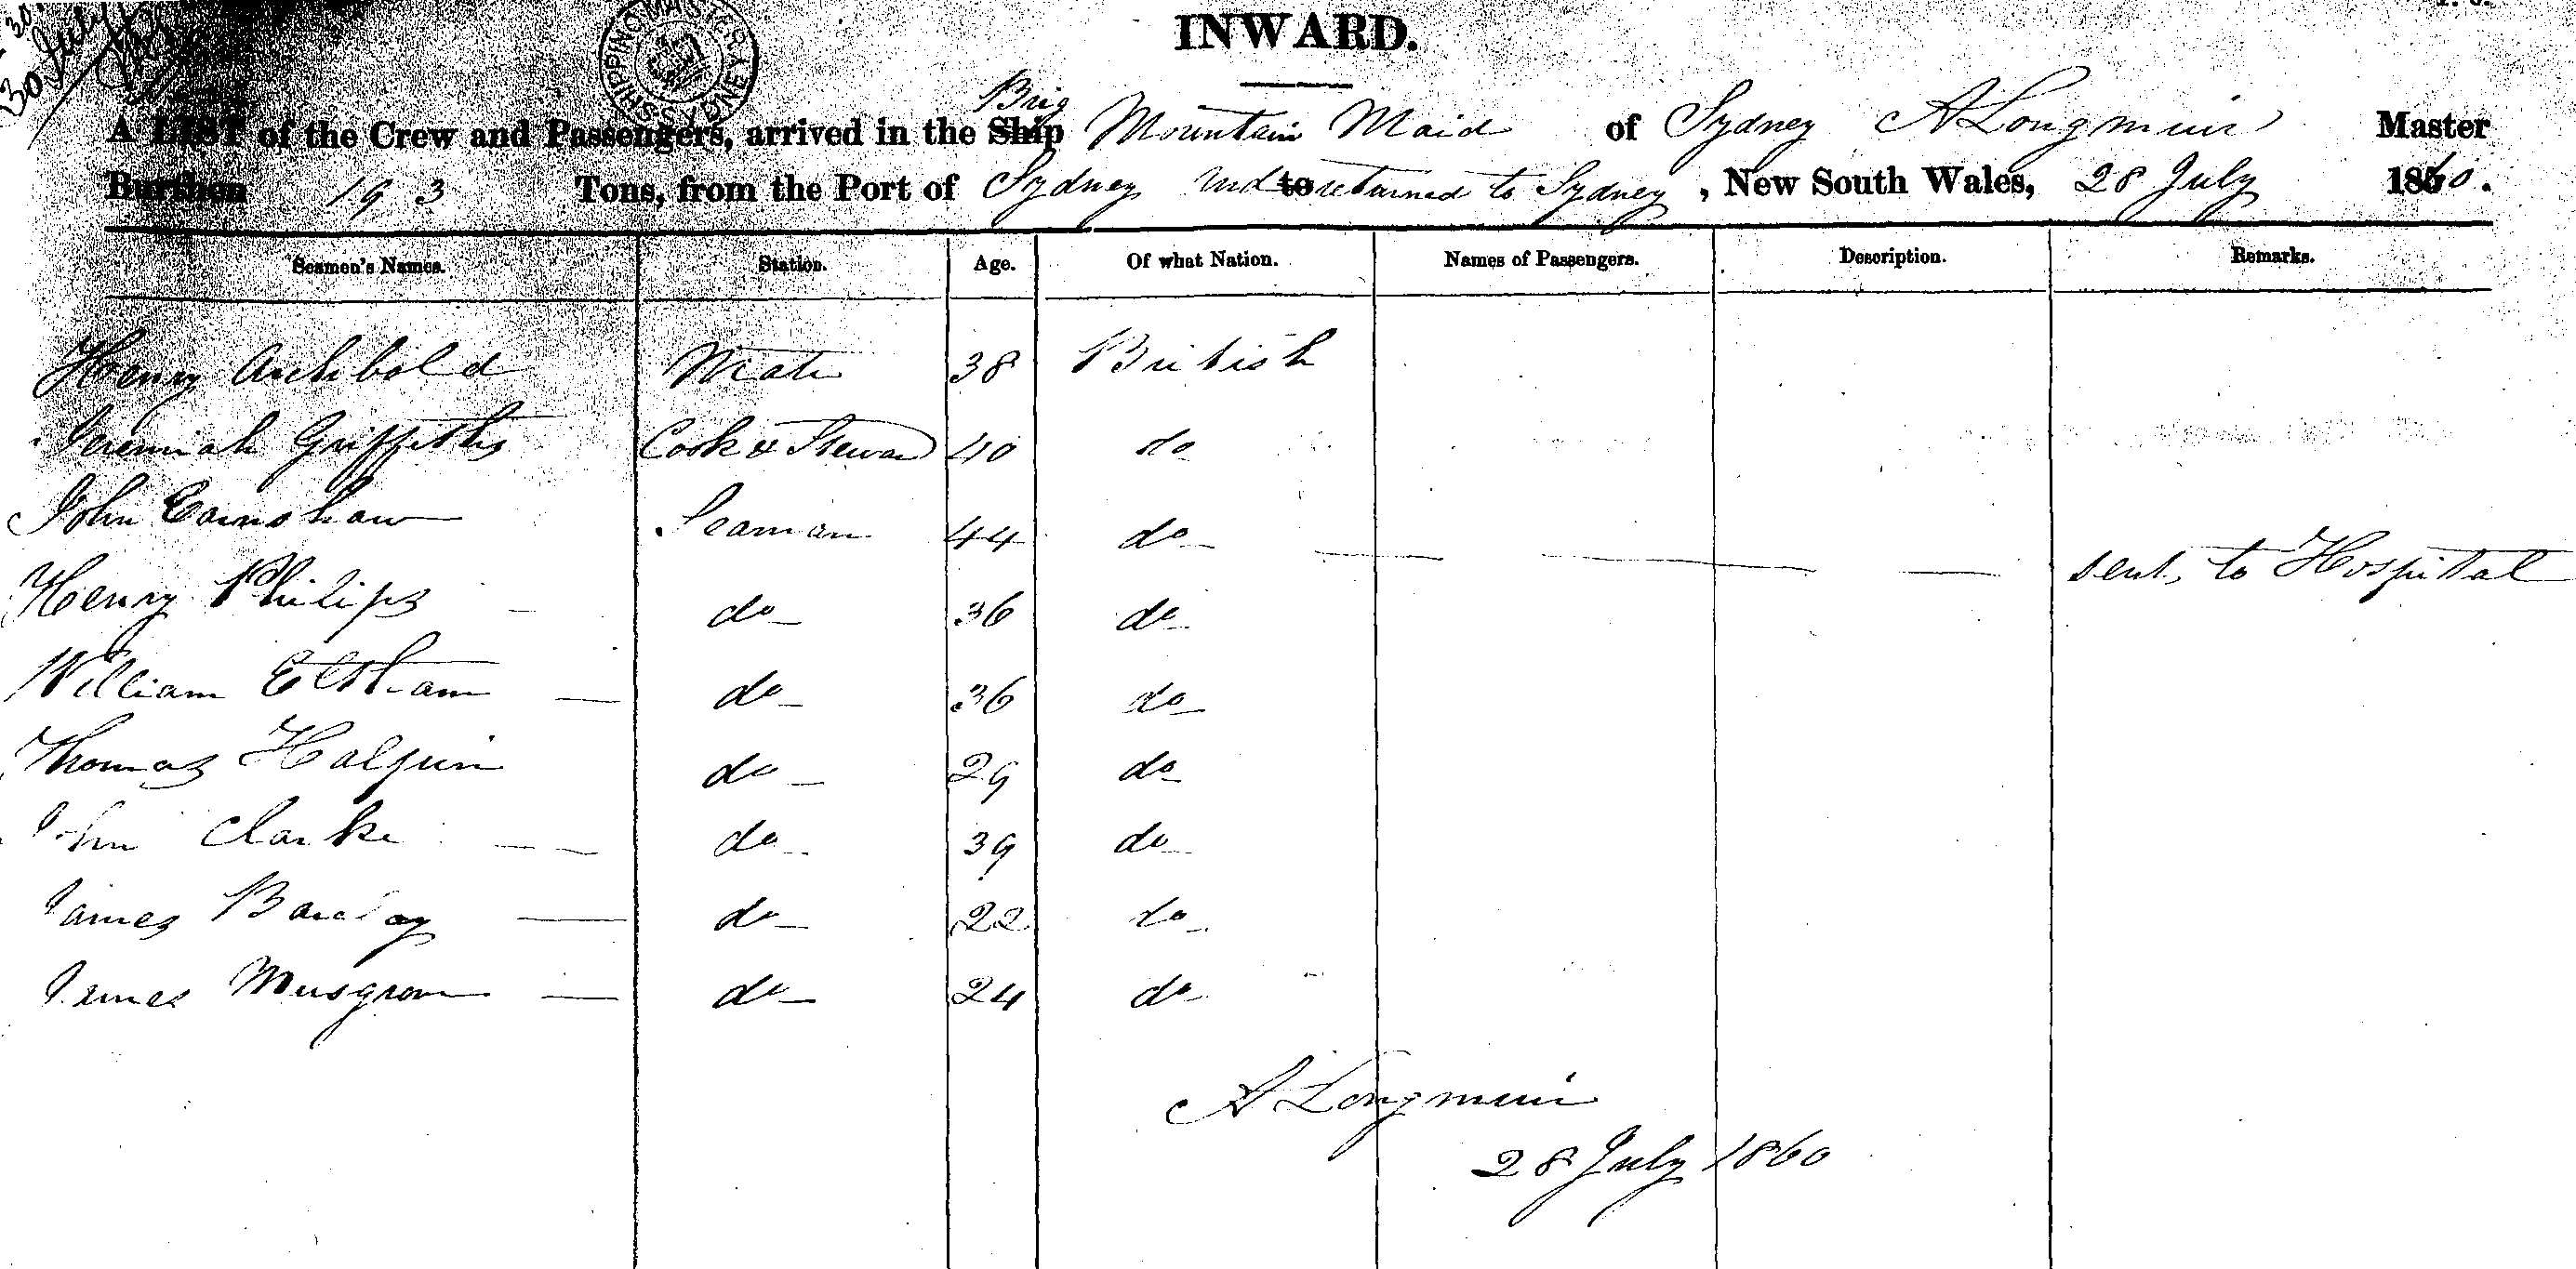 30 July
SHIPPING MASTER SYDNEY
INWARD.
Brig
A LIST of the Crew and Passengers, arrived in the Ship Mountain Maid of Sydney A Longmuir Master
Burthen 193 Tons, from the Port of Sydney and to returned to Sydney, New South Wales, 28 July 1860.
Seamen's Names. Station. Age. Of what Nation. Names of Passengers. Description. Remarks.
Henry Archibold Mate 38 British
Jeremiah Griffiths Cook & Steward 40 do
John Earnshaw Seaman 44 do sent to Hospital
Henry Philips do 36 do
William Eltham do 36 do
Thomas Halpin do 29 do
John Clarke do 39 do
James Barclay do 22 do
James Musgrove do 24 do
A Longmuir
28 July 1860